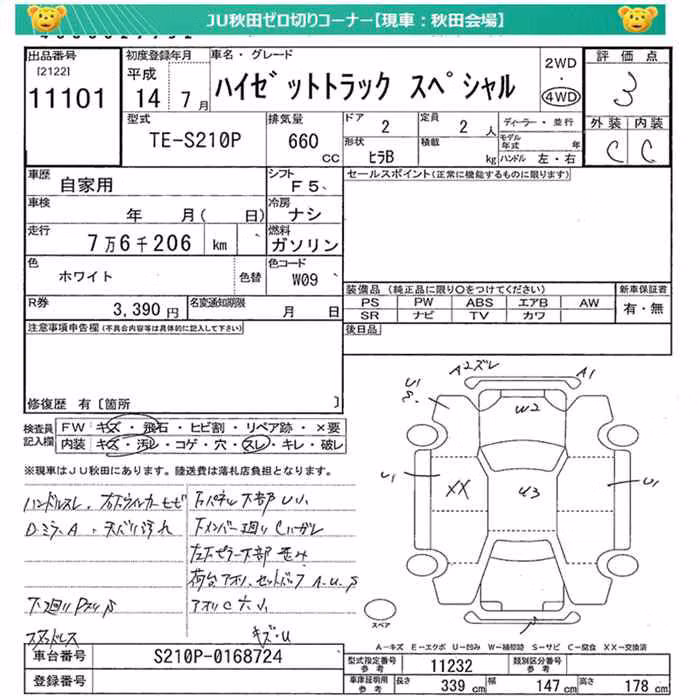 JU秋田ゼロ切りコーナー【現車：秋田会場】
出品番号
[2122]
11101
初度登録年月
平成
14 7 月
車名・グレード
ハイゼットトラック スペシャル
2WD
・
4WD
評価点
3
外装 内装
C C
型式
TE-S210P
排気量
660 CC
ドア 2
定員 2 人
形状 ヒラB
積載 kg
ディーラー・並行
モデル年式 年
ハンドル 左・右
車歴 自家用
シフト F5
車検 年 月( 日)
冷房 ナシ
走行 7万6千206 km
燃料 ガソリン
色 ホワイト 色替
色コード W09
R券 3,390 円
名変通知期限 月 日
セールスポイント(正常に機能するものに限ります)
装備品 (純正品に限り○をつけてください)
PS PW ABS エアB AW
SR ナビ TV カワ
新車保証書
有・無
後日品
注意事項申告欄(不具合内容等は具体的に記入して下さい)
修復歴 有〔箇所 〕
検査員記入欄
FW キズ・飛石・ヒビ割・リペア跡・×要
内装 キズ・汚レ・コゲ・穴・スレ・キレ・破レ
※現車はJU秋田にあります。陸送費は落札店負担となります。
ハンドルスレ
DミラーA・天バリ汚れ
A2ズレ
A1
U1
W2
U1
XX
U3
U1
スペア
A-キズ E-エクボ U-凹み W-補修跡 S-サビ C-腐食 XX-交換済
キズ・U
車台番号 S210P-0168724
登録番号
型式指定番号 参考 11232
類別区分番号 参考
車庫証明用 参考
長さ 339 cm
幅 147 cm
高さ 178 cm